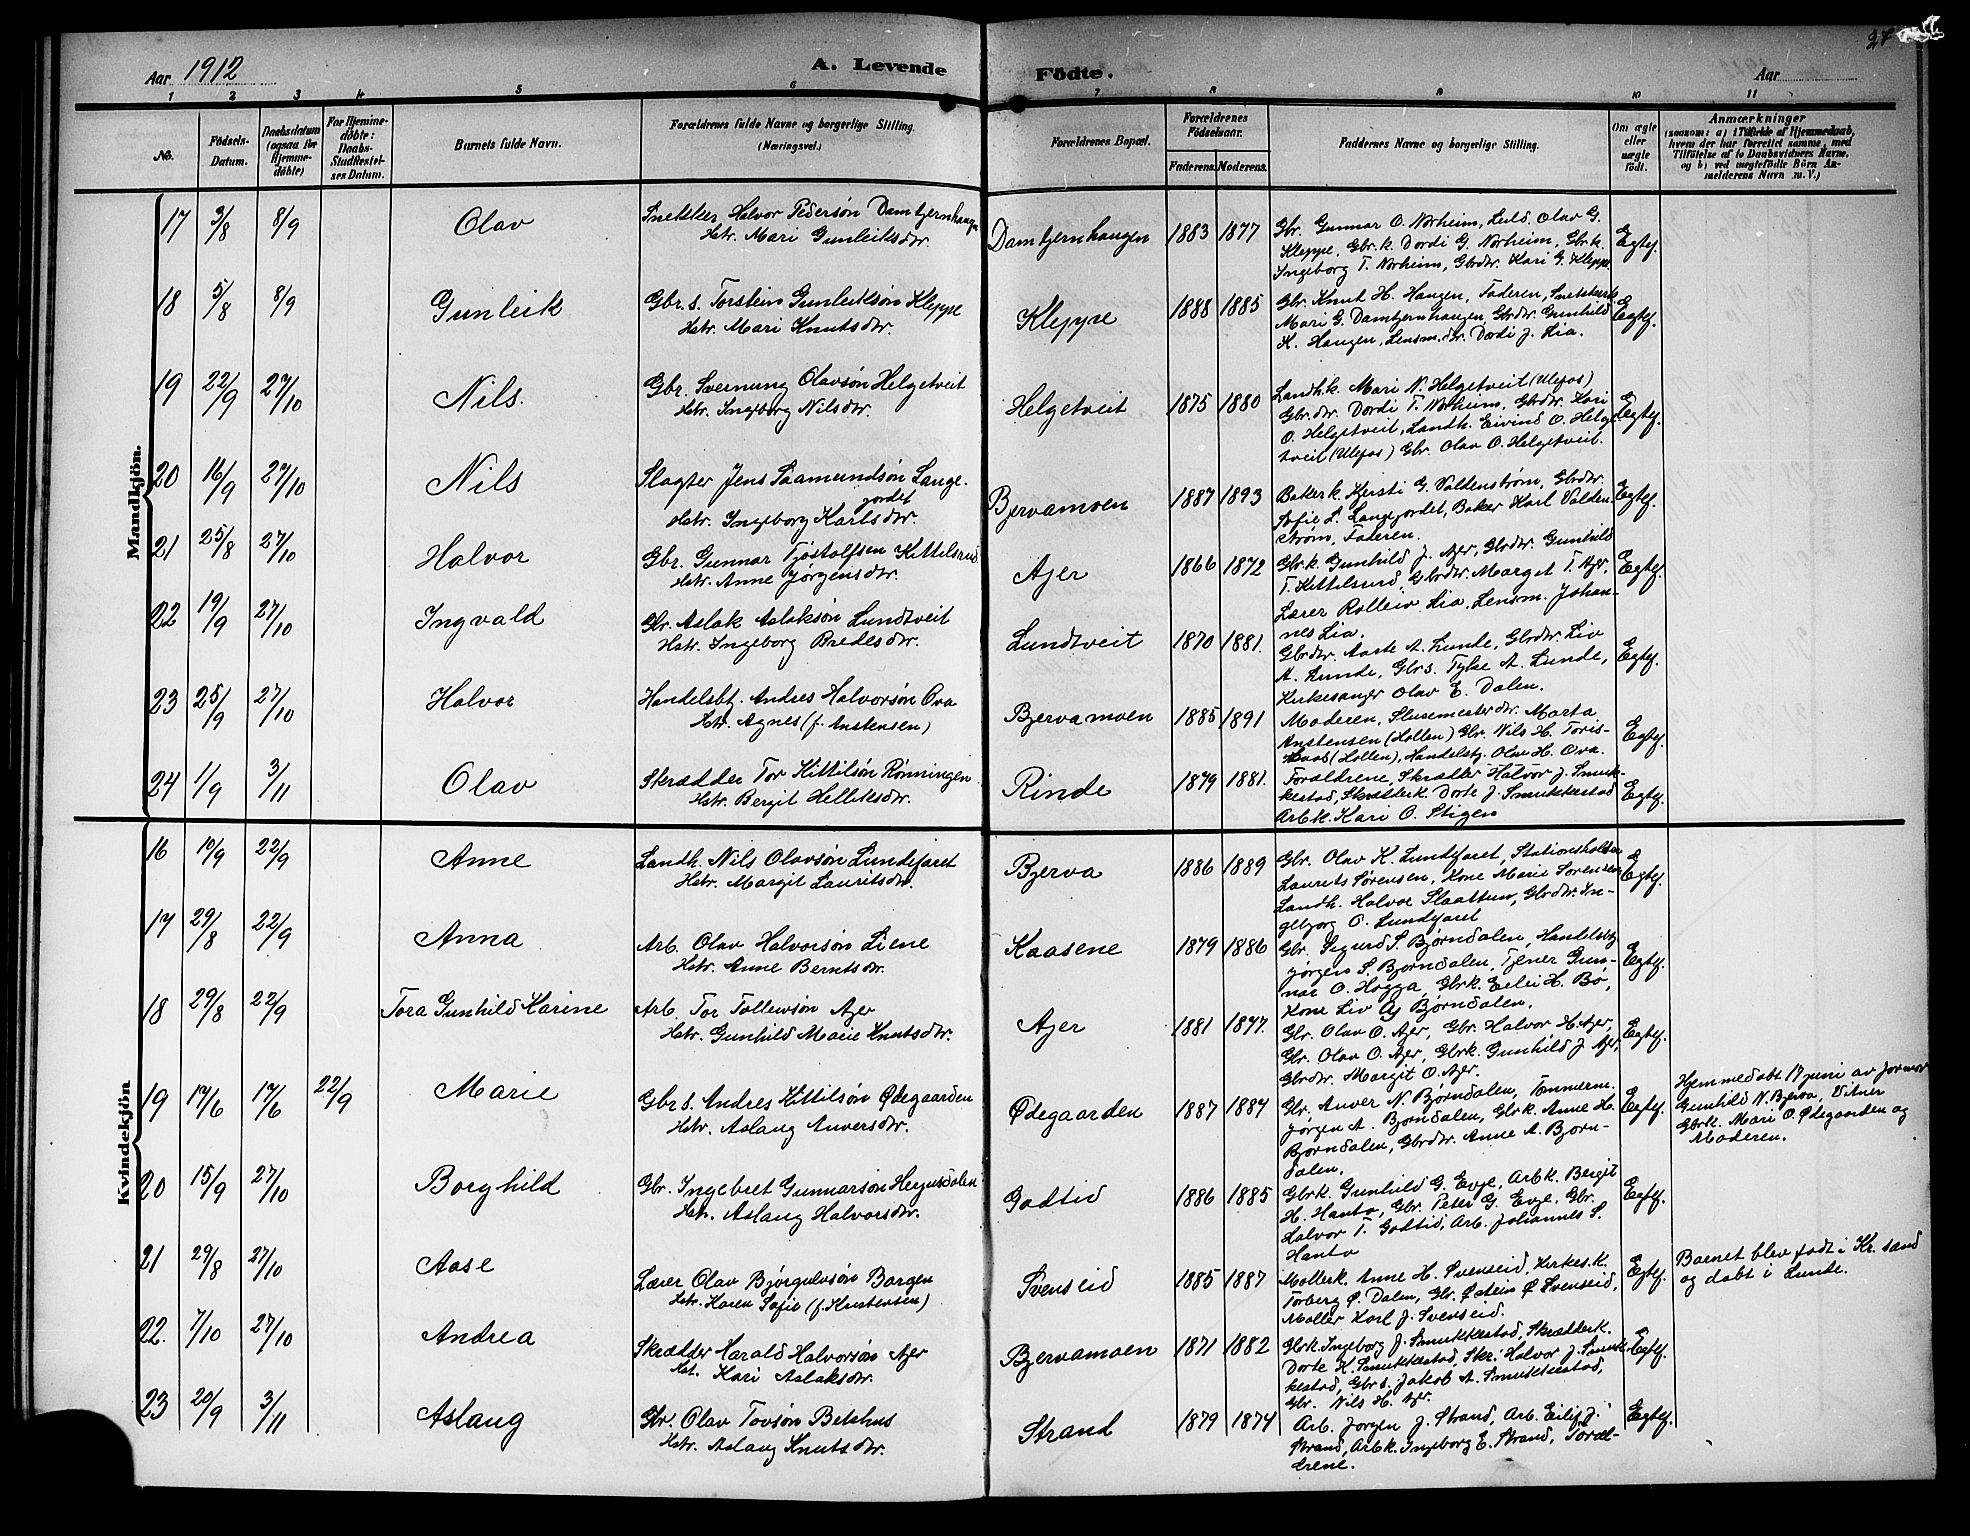 Aar 1912
A. Levende Födte.
Aar
1 2 3 4 5 6 7 8 9 10 11
No.
Födsels-Datum.
Daabsdatum (ogsaa for Hjemme-döbte)
For Hjemme-döbte: Daabs-Stadfæstel-ses Datum.
Barnets fulde Navn.
Forældrenes fulde Navne og borgerlige Stilling.
(Næringsvei.)
Forældrenes Bopæl.
Forældrenes Födselsaar.
Faderens. Moderens.
Faddernes Navne og borgerlige Stilling.
Om ægte eller uægte födt.
Anmærkninger
(saasom: a) i Tilfælde af Hjemmedaab,
hvem der har forrettet samme, med
Tilföielse af to Daabsvidners Navne,
og b) ved uægtefödte Börn An-
melderens Navn m. V.)
Mandkjön.
17 3/8 8/9 Olav
Snekker Halvor Pedersøn Damtjernhaugen
Hstr. Mari Gunleiksdtr.
Damtjernhaugen 1883 1877
Gbr. Gunnar O. Norheim, Leild. Olav G.
Kleppe, Gbr.k. Dordi G. Norheim, Gbr.k.
Ingeborg T. Norheim, Gbrdtr. Kari G. Kleppe
Egtef.
18 5/8 8/9 Gunleik
Gbr.s. Torstein Gunleiksøn Kleppe
Hstr. Mari Knutsdtr.
Kleppe 1888 1885
Gbr. Knut H. Haugen, Faderen, Snekkerk.
Mari G. Damtjernhaugen Gbrdtr. Gunhild
K. Haugen, Lensm.dtr. Dordi J. Lia.
Egtef.
19 22/9 27/10 Nils.
Gbr. Svernung Olavsøn Helgetveit
Hstr. Ingeborg Nilsdtr.
Helgetveit 1875 1880
Landh.k. Mari N. Helgetveit (Ulefos)
Gbr.dtr. Dordi T. Norheim, Gbrdtr. Kari
O. Helgetveit, Landh. Eivind O. Helge-
tveit (Ulefos) Gbr. Olav O. Helgetveit.
Egtef.
20 16/9 27/10 Nils
Slagter Jens Saamundsøn Lange-
jordet
Hstr. Ingeborg Karlsdtr.
Bjervamoen 1887 1893
Bakerk. Kjersti G. Valdenstrøm, Gbrdtr.
Sofie L. Langejordet, Baker Karl Valden-
strøm, Faderen.
Egtef.
21 25/8 27/10 Halvor
Gbr. Gunnar Tjøstolfsen Kittilsrud
Hstr. Anne Jørgensdtr.
Ajer 1866 1872
Gbr.k. Gunhild J. Ajer, Gbrdtr. Gunhild
T. Kittelsrud, Gbrdtr. Marget T. Ajer,
Lærer Rolleiv Lia, Lensm. Johan-
nes Lia.
Egtef.
22 19/9 27/10 Ingvald
Gbr. Aslak Aslaksøn Lundtveit
Hstr. Ingeborg Bredesdtr.
Lundtveit 1870 1881.
Gbrdtr. Aaste A. Lunde, Gbrdtr. Liv
A. Lunde, Gbrs. Tylse A. Lunde,
Kirkesanger Olav E. Dalen.
Egtef.
23 25/9 27/10 Halvor
Handelsbt. Andres Halvorsøn Ova
Hstr. Agnes (f. Anstensen)
Bjervamoen 1885 1891
Moderen, Slusemesterdtr. Marta
Anstensen (Hollen) Gbr. Nils H. Toris-
haas (Hollen), Handelsbtj. Olav H. Ova.
Egtef.
24 1/9 3/11 Olav
Skrædder Tor Kittilsøn Rönningen
Hstr. Bergit Helleiksdtr.
Rinde 1879 1881.
Forældrene, Skrædder Halvor J. Smuk-
kestad, Skrædderk. Dorte J. Smukkestad
Arbk. Kari O. Stigen
Egtef.
Kvindekjön
16 10/9 22/9 Anne
Landh. Nils Olavsøn Lundefaret
Hstr. Margit Lauritsdtr.
Bjerva 1886 1889
Gbr. Olav K. Lundefaret, Stationsholder
Laurets Sørensen, Kone Marie Sørensen
Landh. Halvor Slaattun, Gbrdtr. In-
gebjorg O. Lundefaret
Egtef.
17 29/8 22/9 Anna
Arb. Olav Halvorsøn Liene
Hstr. Anne Berntsdtr.
Kaasene 1879 1886
Gbr. Sigurd S. Bjørndalen, Handelsbtj.
Jørgen S. Bjørndalen, Tjener Gun-
nar O. Hogga, Gbrk. Eilei H. Bø,
Kone Liv Aj Bjørndalen.
Egtef.
18 29/8 22/9 Tora Gunhild Karine
Arb. Tor Tollevsøn Ajer
Hstr. Gunhild Marie Knutsdtr.
Ajer 1881 1877.
Gbr. Olav O. Ajer, Gbr. Halvor H. Ajer,
Gbr. Olav O. Ajer, Gbrk. Gunhild J. Ajer,
Gbrdtr. Margit O. Ajer.
Egtef.
19 17/6 17/6 22/9 Marie
Gbr s. Andres Kittilsøn Ødegaarden
Hstr. Aslaug Anversdtr.
Ødegaarden 1887 1887
Gbr. Anver N. Bjørndalen, Tømmerm.
Jørgen A. Bjørndalen, Gbrk. Anne H.
Bjørndalen, Gbrdtr. Anne A. Bjørn-
dalen.
Egtef.
Hjemmedøbt 17 juni av jormor
Gunhild N. Bjerva, Vitner
Gbrk. Mari O. Ødegaarden og
Moderen.
20 15/9 27/10 Borghild
Gbr. Ingebret Gunnarsøn Hegnadalen
Hstr. Aslaug Halvorsdtr.
Godtid 1886 1885
Gbrk. Gunhild G. Evje, Arbk. Bergit
H. Hanto, Gbr. Peter G. Evje, Gbr.
Halvor T. Godtid, Arb. Johannes S.
Hanto
Egtef.
21 29/8 27/10 Aase
Lærer Olav Bjørgulvsøn Borgen
Hstr. Karen Sofie (f. Kristensen)
Svenseid 1885 1887
Møllerk. Anne H. Svenseid, Kirkes.k.
Torberg Ø. Dalen, Gbr. Østein Ø Svenseid,
Møller Karl J. Svenseid.
Egtef.
Barnet blev født i Kr.sand
og døbt i Lunde.
22. 7/10 27/10 Andrea
Skrædder Harald Halvorsøn Ajer
Hst. Kari Aslaksdtr.
Bjervamoen 1871 1882
Gbrk. Ingeborg J. Smukkestad, Skrædderk.
Dorte K. Smukkestad, Skr. Halvor J. Smuk-
kestad, Gbr s. Jakob A. Smukkestad,
Gbr. Nils H. Ajer.
Egtef.
23 20/9 3/11 Aslaug
Gbr. Olav Tovsøn Betshus
Hstr. Aslaug Knutsdtr.
Strand 1879 1874
Arb. Jørgen J. Strand, Arb. Eilif J.
Strand, Arbk. Ingeborg E. Strand, Foræl-
drene.
Egtef.